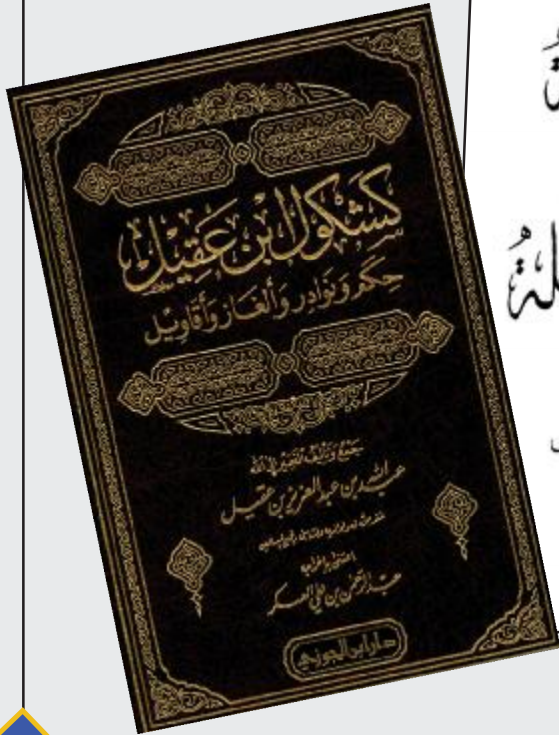 كشكول ابن عقيل
حكم ونوادر وألغاز وأقاويل
جمع وتأليف الفقير إلى الله
عبد الله بن عبد العزيز بن عقيل
عبد الرحمن بن علي العسكر
دار ابن الجوزي